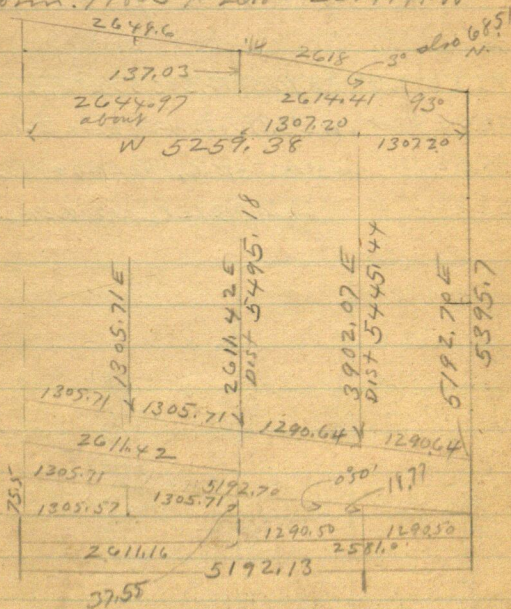 2649.6
1/4
2618
3°
also 685
N.
137.03
2644.97
about
2614.41
93°
1307.20
1307.20
W 5259.38
1305.71 E
2611.42 E
DIST 5495.18
3902.07 E
DIST 5445.44
5192.70 E
5395.7
1305.71
1305.71
1290.64
1290.64
2611.42
1305.71
1305.71
5192.70
0°50'
18.77
75.5
1305.57
1290.50
1290.50
2611.16
2581.0
5192.13
37.55